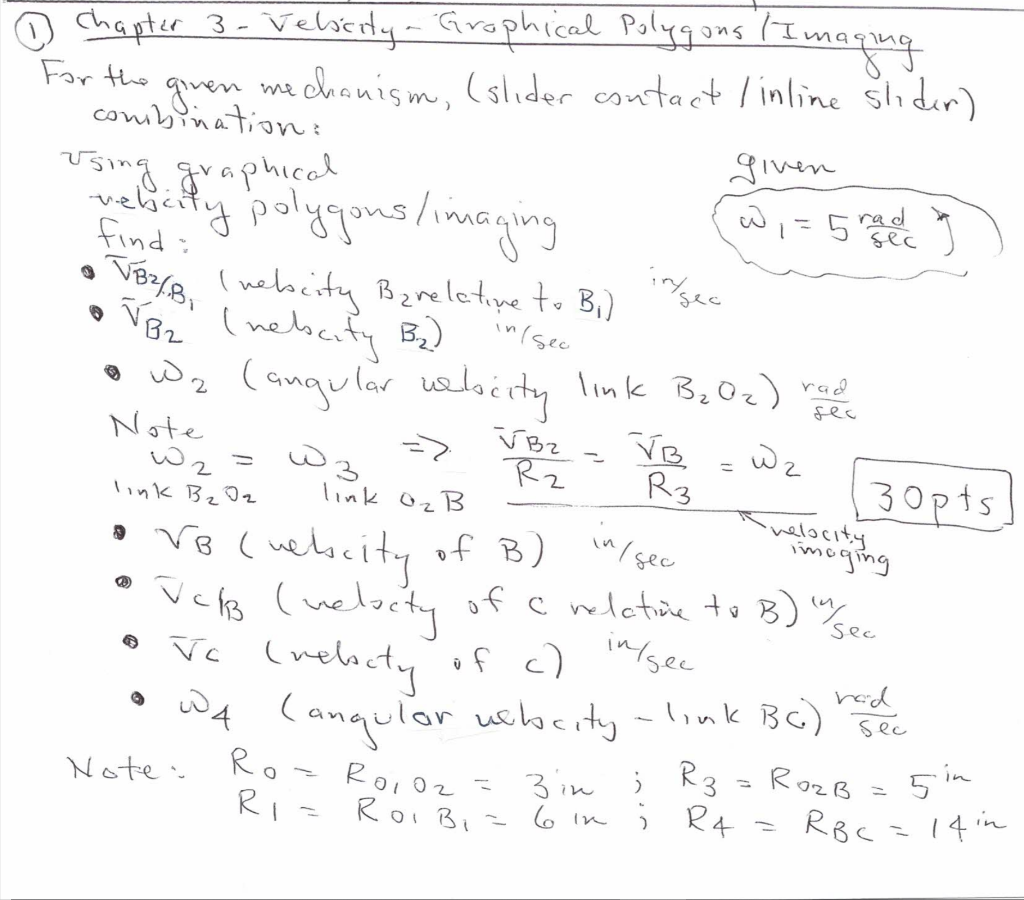 ① Chapter 3 - Velocity - Graphical Polygons / Imaging
For the given mechanism, (slider contact / inline slider)
combination:
Using graphical
velocity polygons / imaging
find:
given
ω₁ = 5 rad/sec
• V̄B₂/B₁ (velocity B₂ relative to B₁) in/sec
• V̄B₂ (velocity B₂) in/sec
• ω₂ (angular velocity link B₂O₂) rad/sec
Note
ω₂ = ω₃ => V̄B₂/R₂ = V̄B/R₃ = ω₂
link B₂O₂ link O₂B
30pts
velocity
imaging
• VB (velocity of B) in/sec
• V̄c/B (velocty of c relative to B) in/sec
• V̄c (velocty of c) in/sec
• ω4 (angular velocity - link BC) rad/sec
Note: R₀ = RO₁O₂ = 3 in ; R3 = RO2B = 5 in
R1 = RO1B₁ = 6 in ; R4 = RBC = 14 in